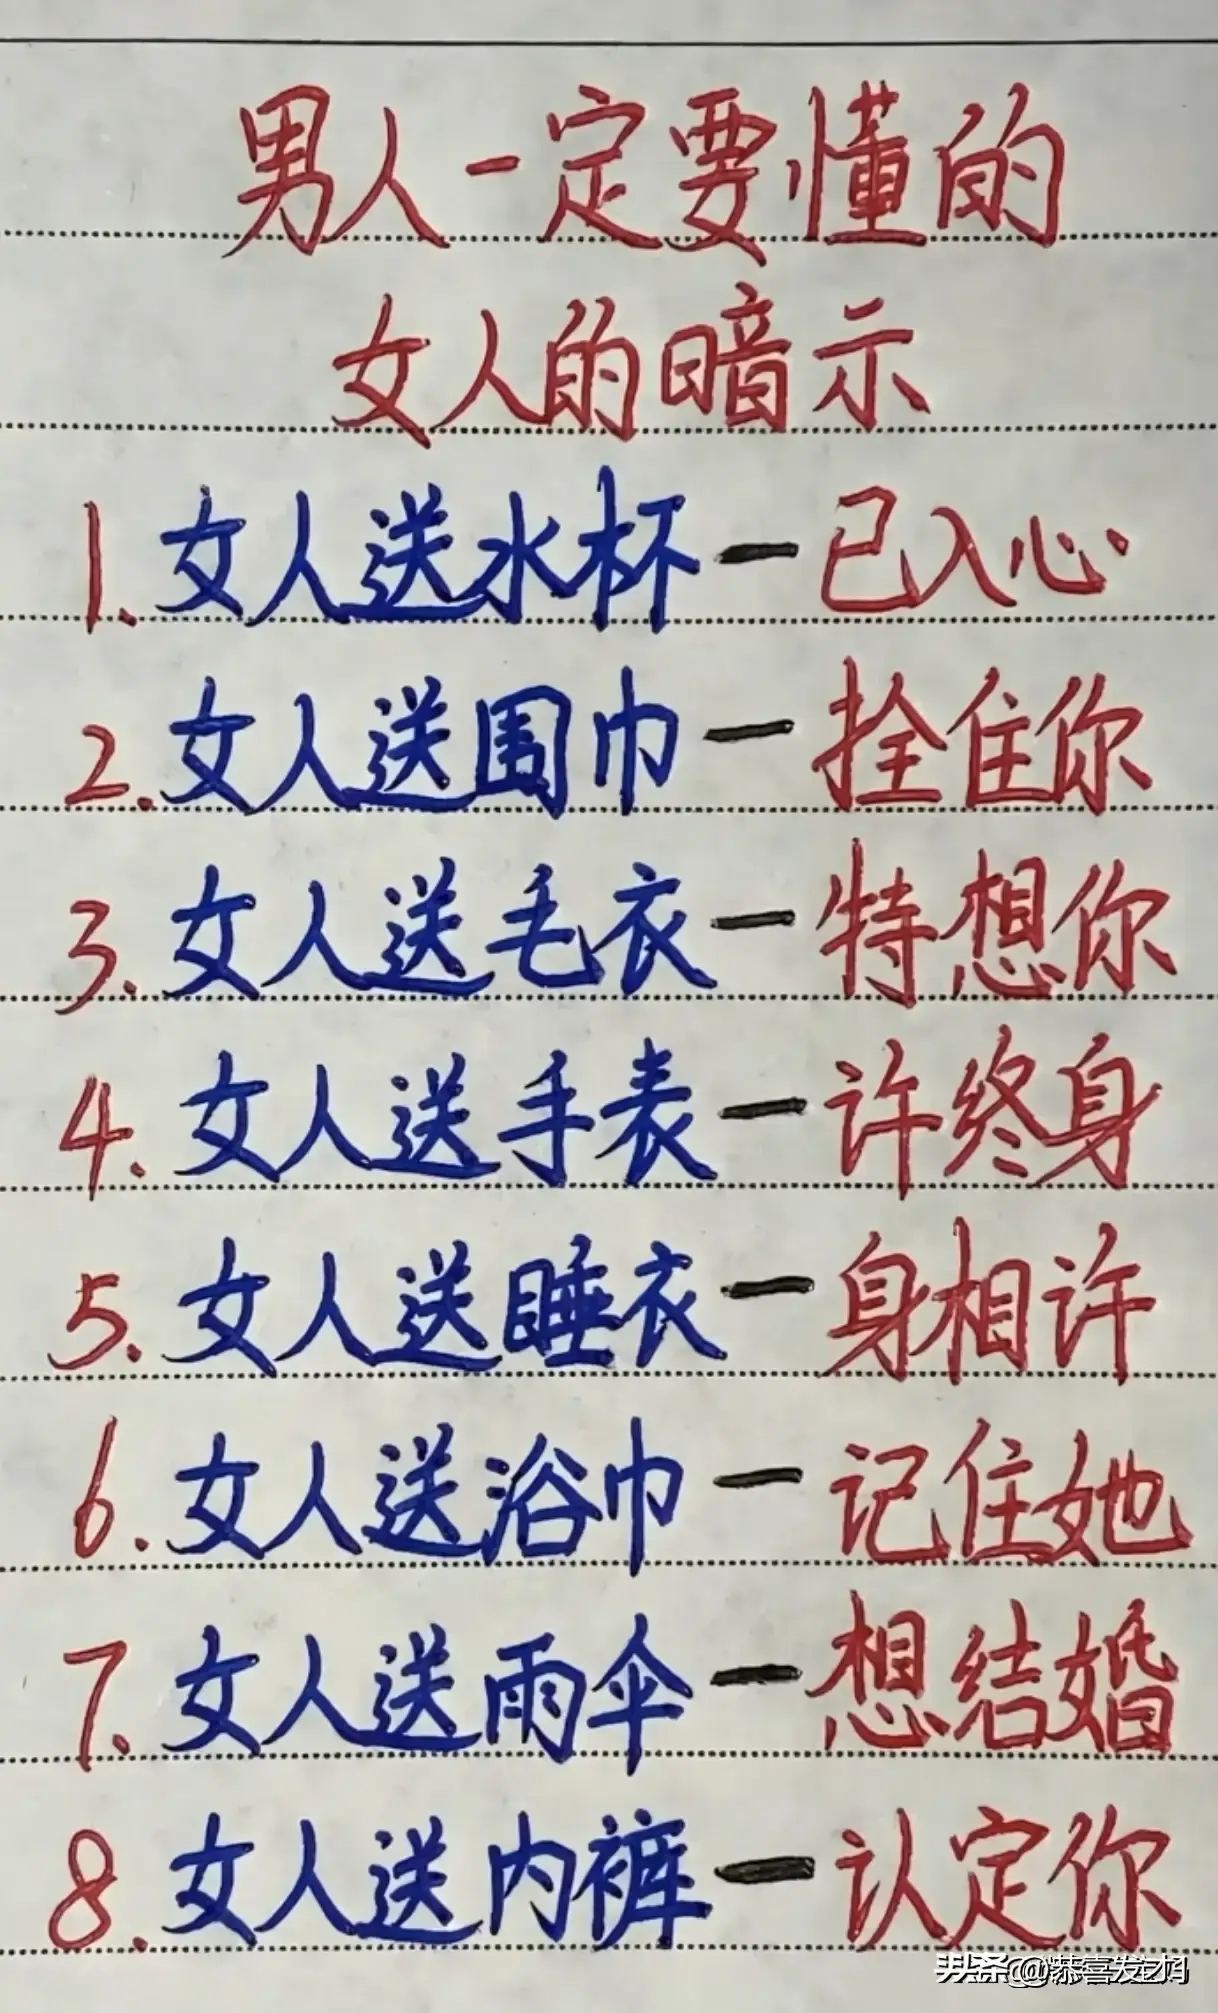 男人一定要懂的
女人的暗示
1. 女人送水杯一已入心
2. 女人送围巾一拴住你
3. 女人送毛衣一特想你
4. 女人送手表一许终身
5. 女人送睡衣一身相许
6. 女人送浴巾一记住她
7. 女人送雨伞一想结婚
8. 女人送内裤一认定你
头条@恭喜发财